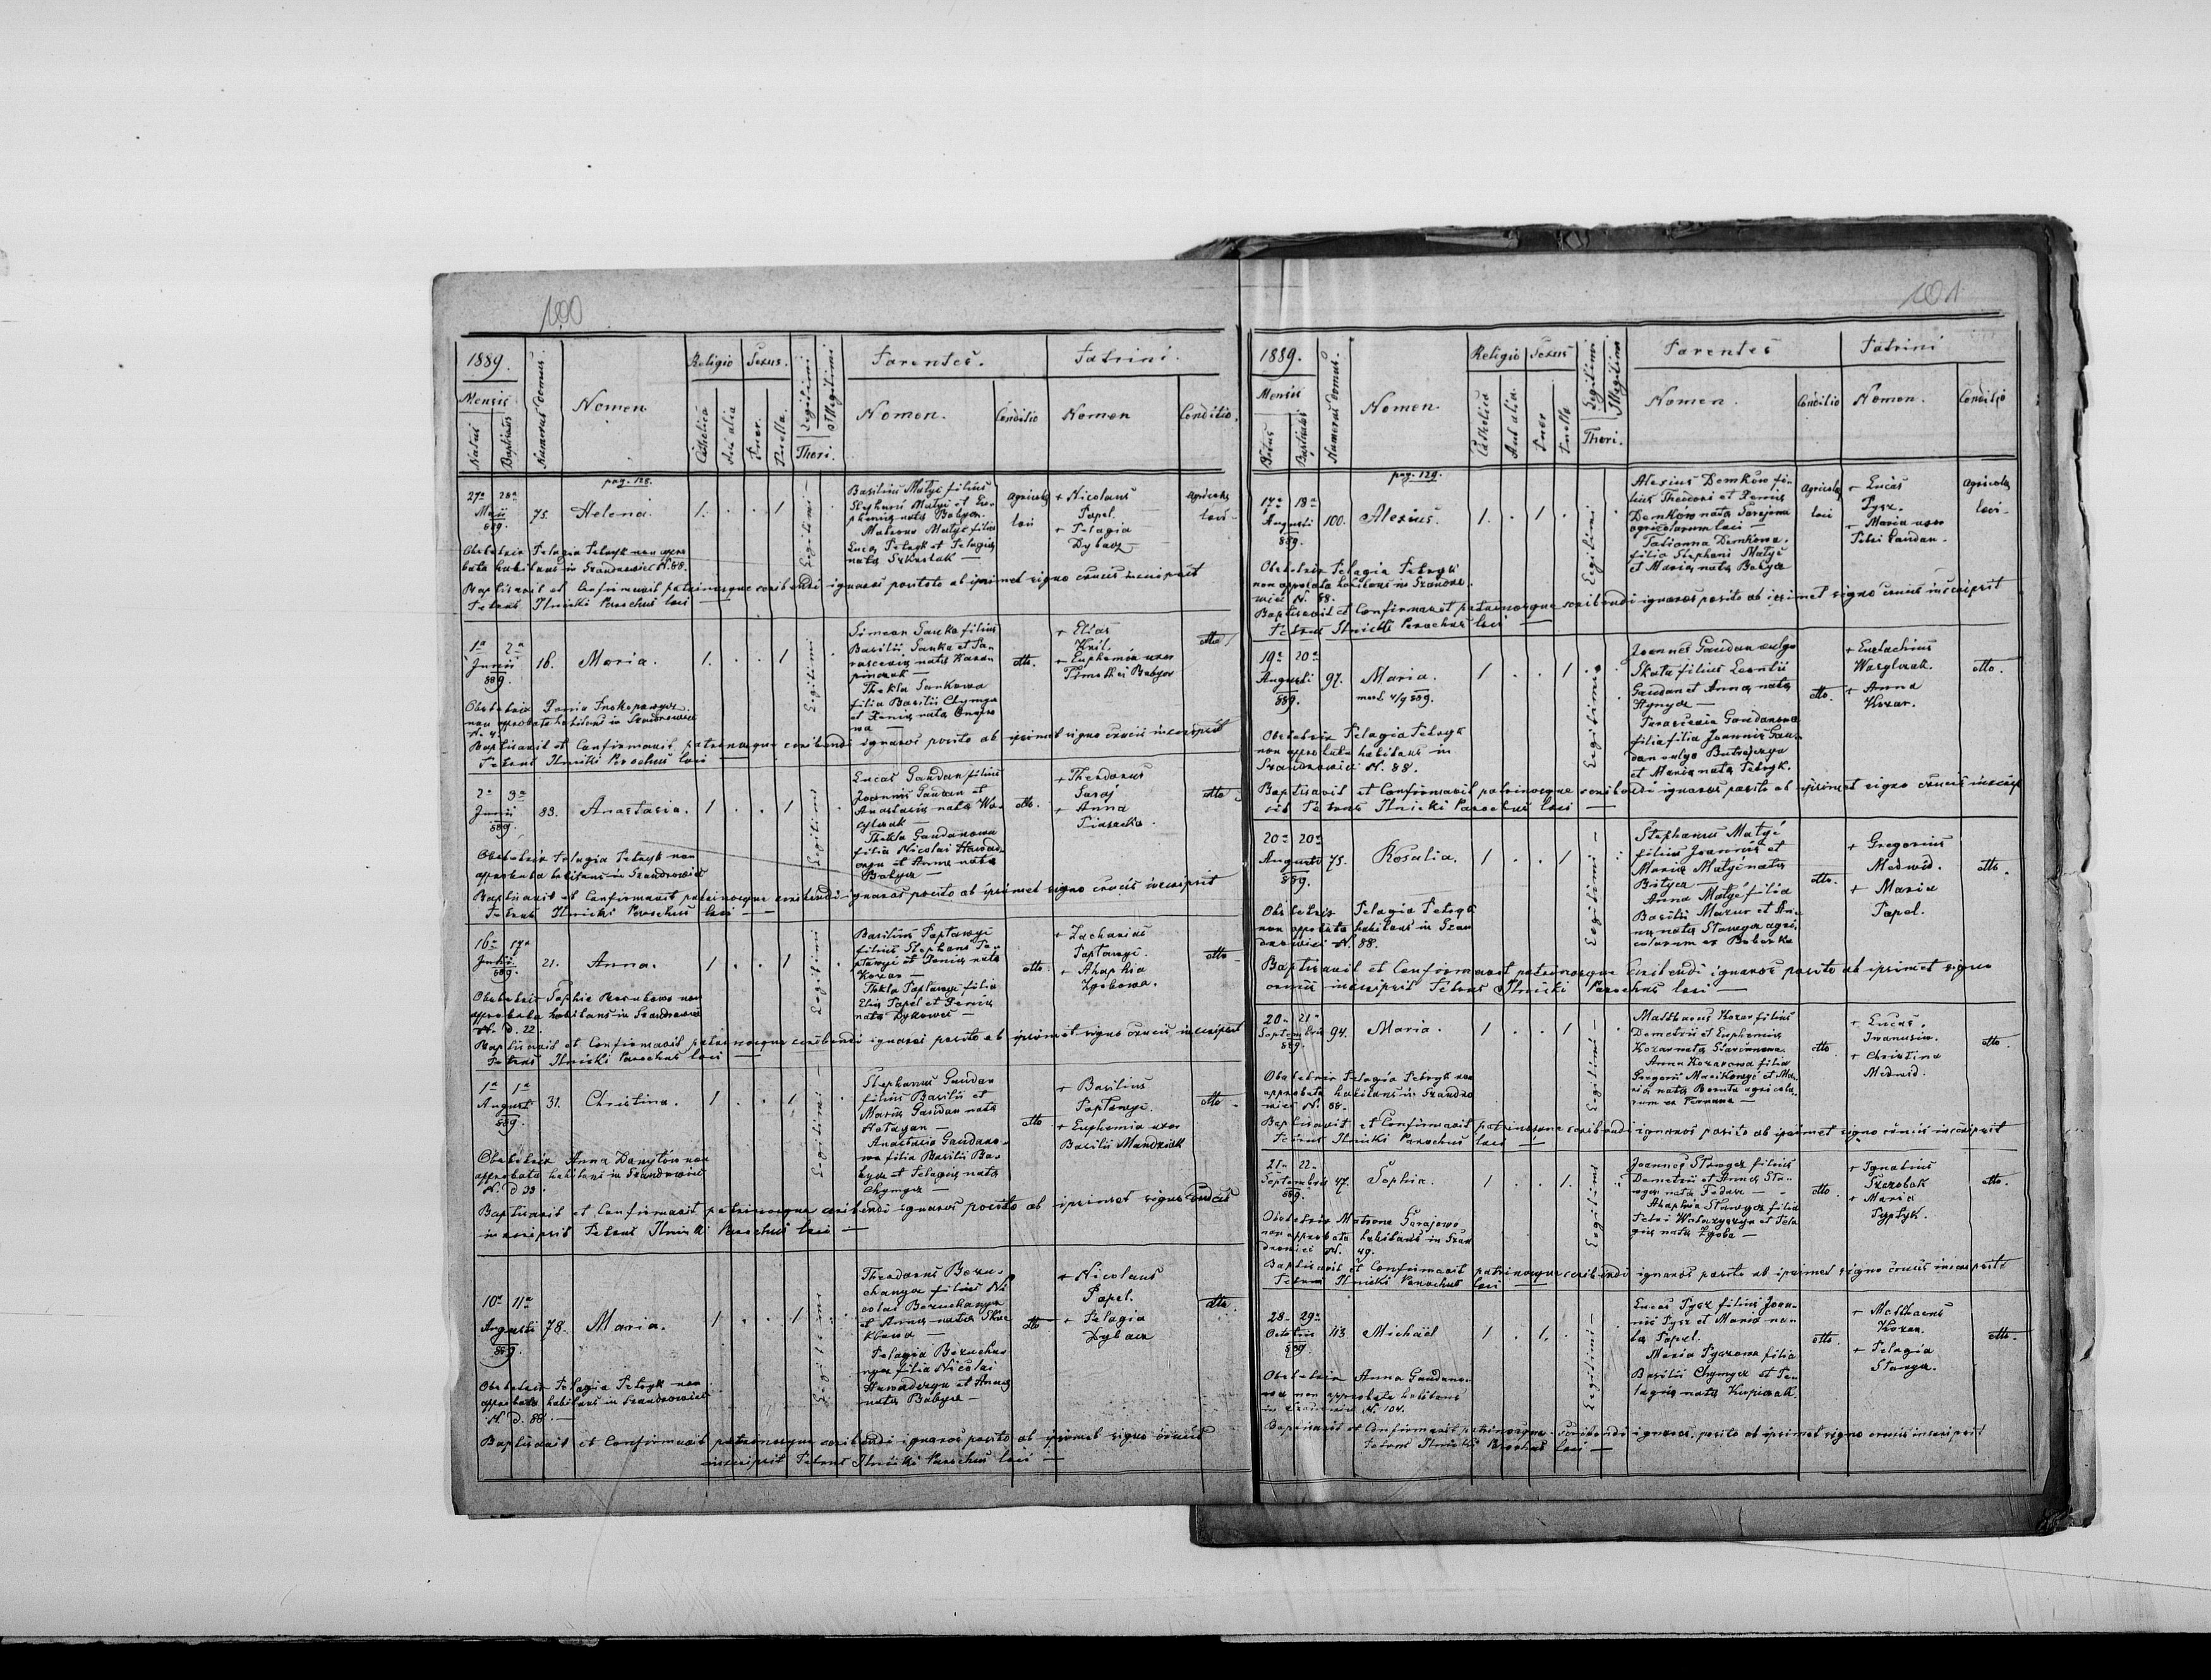 100
1889.
Mensis
Natus
Baptisatus
Numerus domus.
Nomen
Religio
Catholica
Aut alia
Sexus.
Puer.
Puella.
Legitimi
Illegitimi
Thori.
Parentes.
Nomen.
Conditio
Patrini.
Nomen
Conditio.
pag. 128.
27a 28a
Maii
889.
75.
Helena.
1. . . 1
Legitimi
Basilius Matyi filius
Stephani Matyi et Eu-
phemiæ nata Babyar.
Matrona Matyi filia
Lucæ Petryk et Pelagiæ
nata
Agricola
loci
+ Nicolaus
Papel.
+ Pelagia
Dybacz
Agricola
loci
Obstetrix Pelagia Petryk non appro
bata habitans in Szandrowiec N. 88.
Baptisavit et Confirmavit patrinosque scribendi ignaros posito ab ipsimet signo crucis inscripsit
Petrus Ilnicki Parochus loci
1a 2a
Junii
889.
16.
Maria.
1. . . 1
Legitimi
Simeon Sanko filius
Basilii Sanko et Pa-
rasceviæ nata
Thekla Sankowa
filia Basilii Chymya
et Xeniæ nata
dtto.
+ Elias
Kril.
+ Euphemia uxor
Timothei Babyar
dtto
Obstetrix Xenia Prokopowycz
non approbata habitans in Szandrowiec
N. 4.
Baptisavit et Confirmavit patrinosque scribendi ignaros posito ab ipsimet signo crucis inscripsit
Petrus Ilnicki Parochus loci
2a 3a
Junii
889.
83.
Anastasia.
1 . . 1
Legitimi
Lucas Gandan filius
Joannis Gandan et
Anastasiæ nata
Thekla Gandanowa
filia Nicolai Hawad-
et Annæ nata
Babyar
dtto.
+ Theodorus
Saraj
+ Anna
Piasecka.
dtto
Obstetrix Pelagia Petryk non
approbata habitans in Szandrowiec
Baptisavit et Confirmavit patrinosque scribendi ignaros posito ab ipsimet signo crucis inscripsit
Petrus Ilnicki Parochus loci
16a 17a
889.
21.
Anna.
1 . . 1
Legitimi
Basilius Paptawyi
filius Stephani Pa-
ptawyi et Xeniæ nata
Kozar
Thekla Paptawyi filia
Eliæ Papel et Xeniæ
nata Dykowec
dtto
+ Zacharias
Paptawyi.
+ Ahaphia
Zgobowa.
dtto
Obstetrix Sophia
approbata habitans in Szandrowiec
N. d. 22.
Baptisavit et Confirmavit patrinosque scribendi ignaros posito ab ipsimet signo crucis inscripsit
Petrus Ilnicki Parochus loci
1a 1a
August
889.
31.
Christina.
1 . . 1
Legitimi
Stephanus Gandan
filius Basilii et
Mariæ Gandan nata
Anastasia Gandano-
wa filia Basilii Ba-
byar et Pelagiæ nata
Chymya
dtto
+ Basilius
Paptawyi.
+ Euphemia uxor
Basilii Mandziak
dtto
Obstetrix Anna Danylów non
approbata habitans in Szandrowiec
N. d 33.
Baptisavit et Confirmavit patrinosque scribendi ignaros posito ab ipsimet signo crucis
inscripsit Petrus Ilnicki Parochus loci
10a 11a
Augusti
889.
78.
Maria.
1 . . 1
Legitimi
Theodorus Bezu-
chanya filius Ni
colai Bezuchanya
et Annæ nata
Pelagia Bezucha-
nya filia Nicolai
et Annæ
nata Babyar
dtto
+ Nicolaus
Papel.
+ Pelagia
Dybacz
dtto
Obstetrix Pelagia Petryk non
approbata habitans in Szandrowiec
N. d. 88.
Baptisavit et Confirmavit patrinosque scribendi ignaros posito ab ipsimet signo crucis
inscripsit Petrus Ilnicki Parochus loci
101
1889.
Mensis
Natus
Baptisatus
Numerus domus.
Nomen.
Religio
Catholica
Aut alia.
Sexus
Puer
Puella
Legitimi
Illegitimi
Thori.
Parentes
Nomen.
Conditio
Patrini
Nomen.
Conditio
pag. 129.
17a 18a
Augusti
889.
100.
Alexius.
1. . 1 .
Legitimi
Alexius Demków fi-
lius Theodori et Xeniæ
Demków nata Sarajowa
agricolarum loci
Tatianna Demkowa.
filia Stephani Matyi
et Mariæ nata Babyar
Agricola
loci
+ Lucas
Pysz.
+ Maria uxor
Petri Gandan.
Agricola
loci
Obstetrix Pelagia Petryk
non approbata habitans in Szandro-
wiec N. 88.
Baptisavit et Confirmavit patrinosque scribendi ignaros posito ab ipsimet signo crucis inscripsit
Petrus Ilnicki Parochus loci
19a 20a
Augusti
889.
97.
Maria.
mort. 4/9 889.
1 . . 1
Legitimi
Joannes Gandan vulgo
Skata filius Leontii
Gandan et Annæ nata
Hynycz
Parascevia Gandanowa
filia filia Joannis Gan-
dan vulgo
et Mariæ nata Petryk.
dtto
+ Eustachius
Wasylczak.
+ Anna
Kozar.
dtto.
Obstetrix Pelagia Petryk
non approbata habitans in
Szandrowiec N. 88.
Baptisavit et Confirmavit patrinosque scribendi ignaros posito ab ipsimet signo crucis inscrip
sit Petrus Ilnicki Parochus loci
20a 20a
Augusti
889.
75.
Rosalia.
1 . . 1
Legitimi
Stephanus Matyi
filius Joannis et
Mariæ Matyi nata
Anna Matyi filia
Basilii Mazur et An-
næ nata Stawycz agri-
colarum ex Boberka
dtto.
+ Gregorius
Medwid.
+ Maria
Papel.
dtto.
Obstetrix Pelagia Petryk
non approbata habitans in Szan
drowiec N. 88.
Baptisavit et Confirmavit patrinosque scribendi ignaros posito ab ipsimet signo
crucis inscripsit Petrus Ilnicki Parochus loci
20a 21a
Septembris
889.
94.
Maria.
1 . . 1
Legitimi
Matthaeus Kozar filius
Demetrii et Euphemiæ
Kozar nata
Anna Kozarowa filia
Gregorii et Ma-
riæ nata agricola-
rum ex
dtto
+ Lucas.
Iwanusin.
+ Christina
Medwid.
dtto.
Obstetrix Pelagia Petryk non
approbata habitans in Szandro
wiec N. 88.
Baptisavit et Confirmavit patrinosque scribendi ignaros posito ab ipsimet signo crucis inscripsit
Petrus Ilnicki Parochus loci
21a 22a
Septembris
889.
47.
Sophia.
1 . . 1.
Legitimi
Joannes Stawycz filius
Demetrii et Annæ Sta-
wycz nata Fedasz
Ahaphia Stawycz filia
Petri et Pela
giæ nata Zgoba
dtto
+ Ignatius
Szczobak
+ Maria
Pyptyk.
dtto.
Obstetrix Matrona Sarajowa
non approbata habitans in Szan
drowiec N. 49.
Baptisavit et Confirmavit patrinosque scribendi ignaros posito ab ipsimet signo crucis inscripsit
Petrus Ilnicki Parochus loci
28a 29a
Octobris
889.
113.
Michaël
1 . 1. .
Legitimi
Lucas Pysz filius Joan-
nis Pysz et Mariæ na-
ta Papel.
Maria Pyszowa filia
Basilii Chymya et Pe-
lagiæ nata
dtto
+ Matthaeus
Kozar.
+ Pelagia
Stawycz.
dtto.
Obstetrix Anna Gandano-
wa non approbata habitans
in Szandrowiec N. 104.
Baptisavit et Confirmavit patrinosque scribendi ignaros posito ab ipsimet signo crucis inscripsit
Petrus Ilnicki Parochus loci